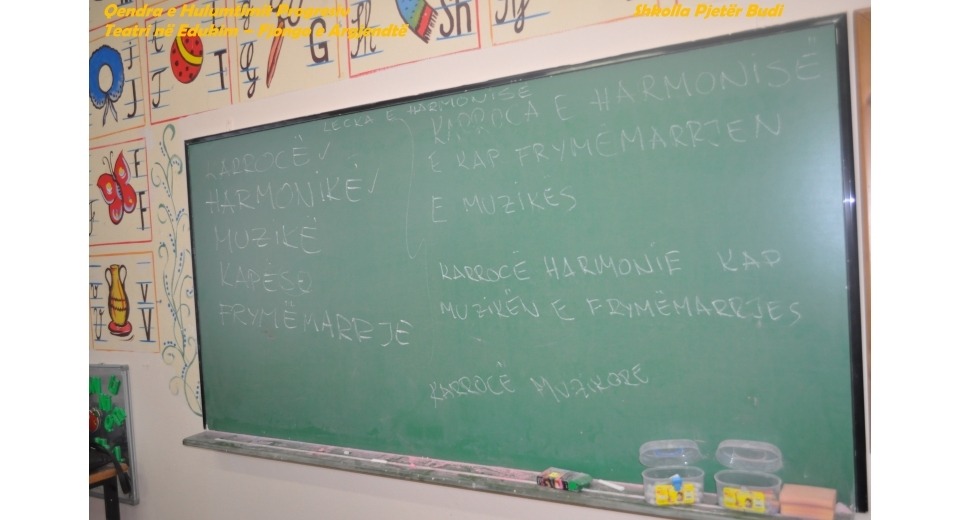 Qendra e Hulumtimit Progresiv
Teatri në Edukim – Plonga e Argjendtë
Shkolla Pjetër Budi
J
J
I
I
G
G
Sh
Sh
F
F
V
V
LECKA E HARMONISË
KARROCË ✓
HARMONIKË ✓
MUZIKË
KAPËSO
FRYMËMARRJE
KARROCA E HARMONISË
E KAP FRYMËMARRJEN
E MUZIKËS
KARROCË HARMONIE KAP
MUZIKËN E FRYMËMARRJES
KARROCË MUZIKORE